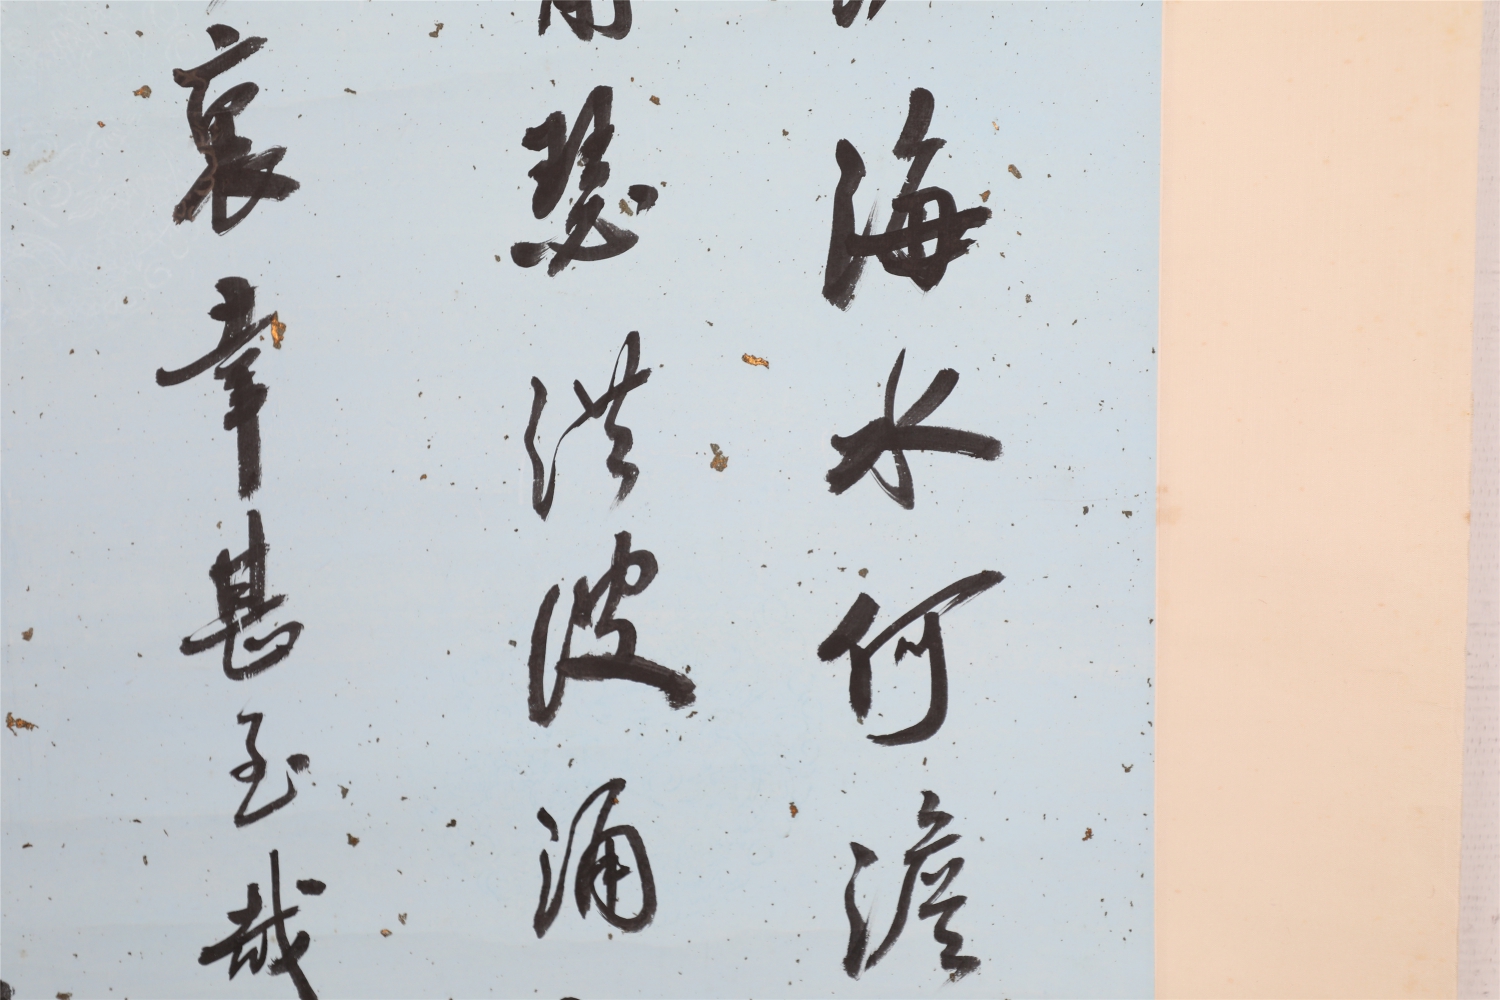 海水何澹
瑟洪波涌
裏幸甚至哉